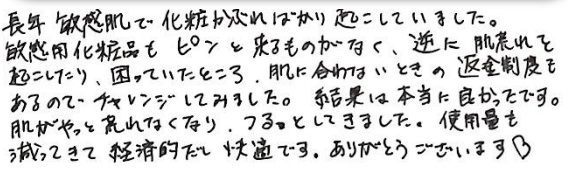 長年 敏感肌で 化粧かぶればかり 起こしていました。
敏感用化粧品も ピンと 来るものがなく、逆に 肌荒れを
起こしたり、困っていたところ、肌に合わないときの 返金制度も
あるので チャレンジしてみました。 結果は本当に良かったです。
肌がやっと荒れなくなり、つるっとしてきました。 使用量も
減ってきて 経済的だし 快適です。ありがとうございます♡